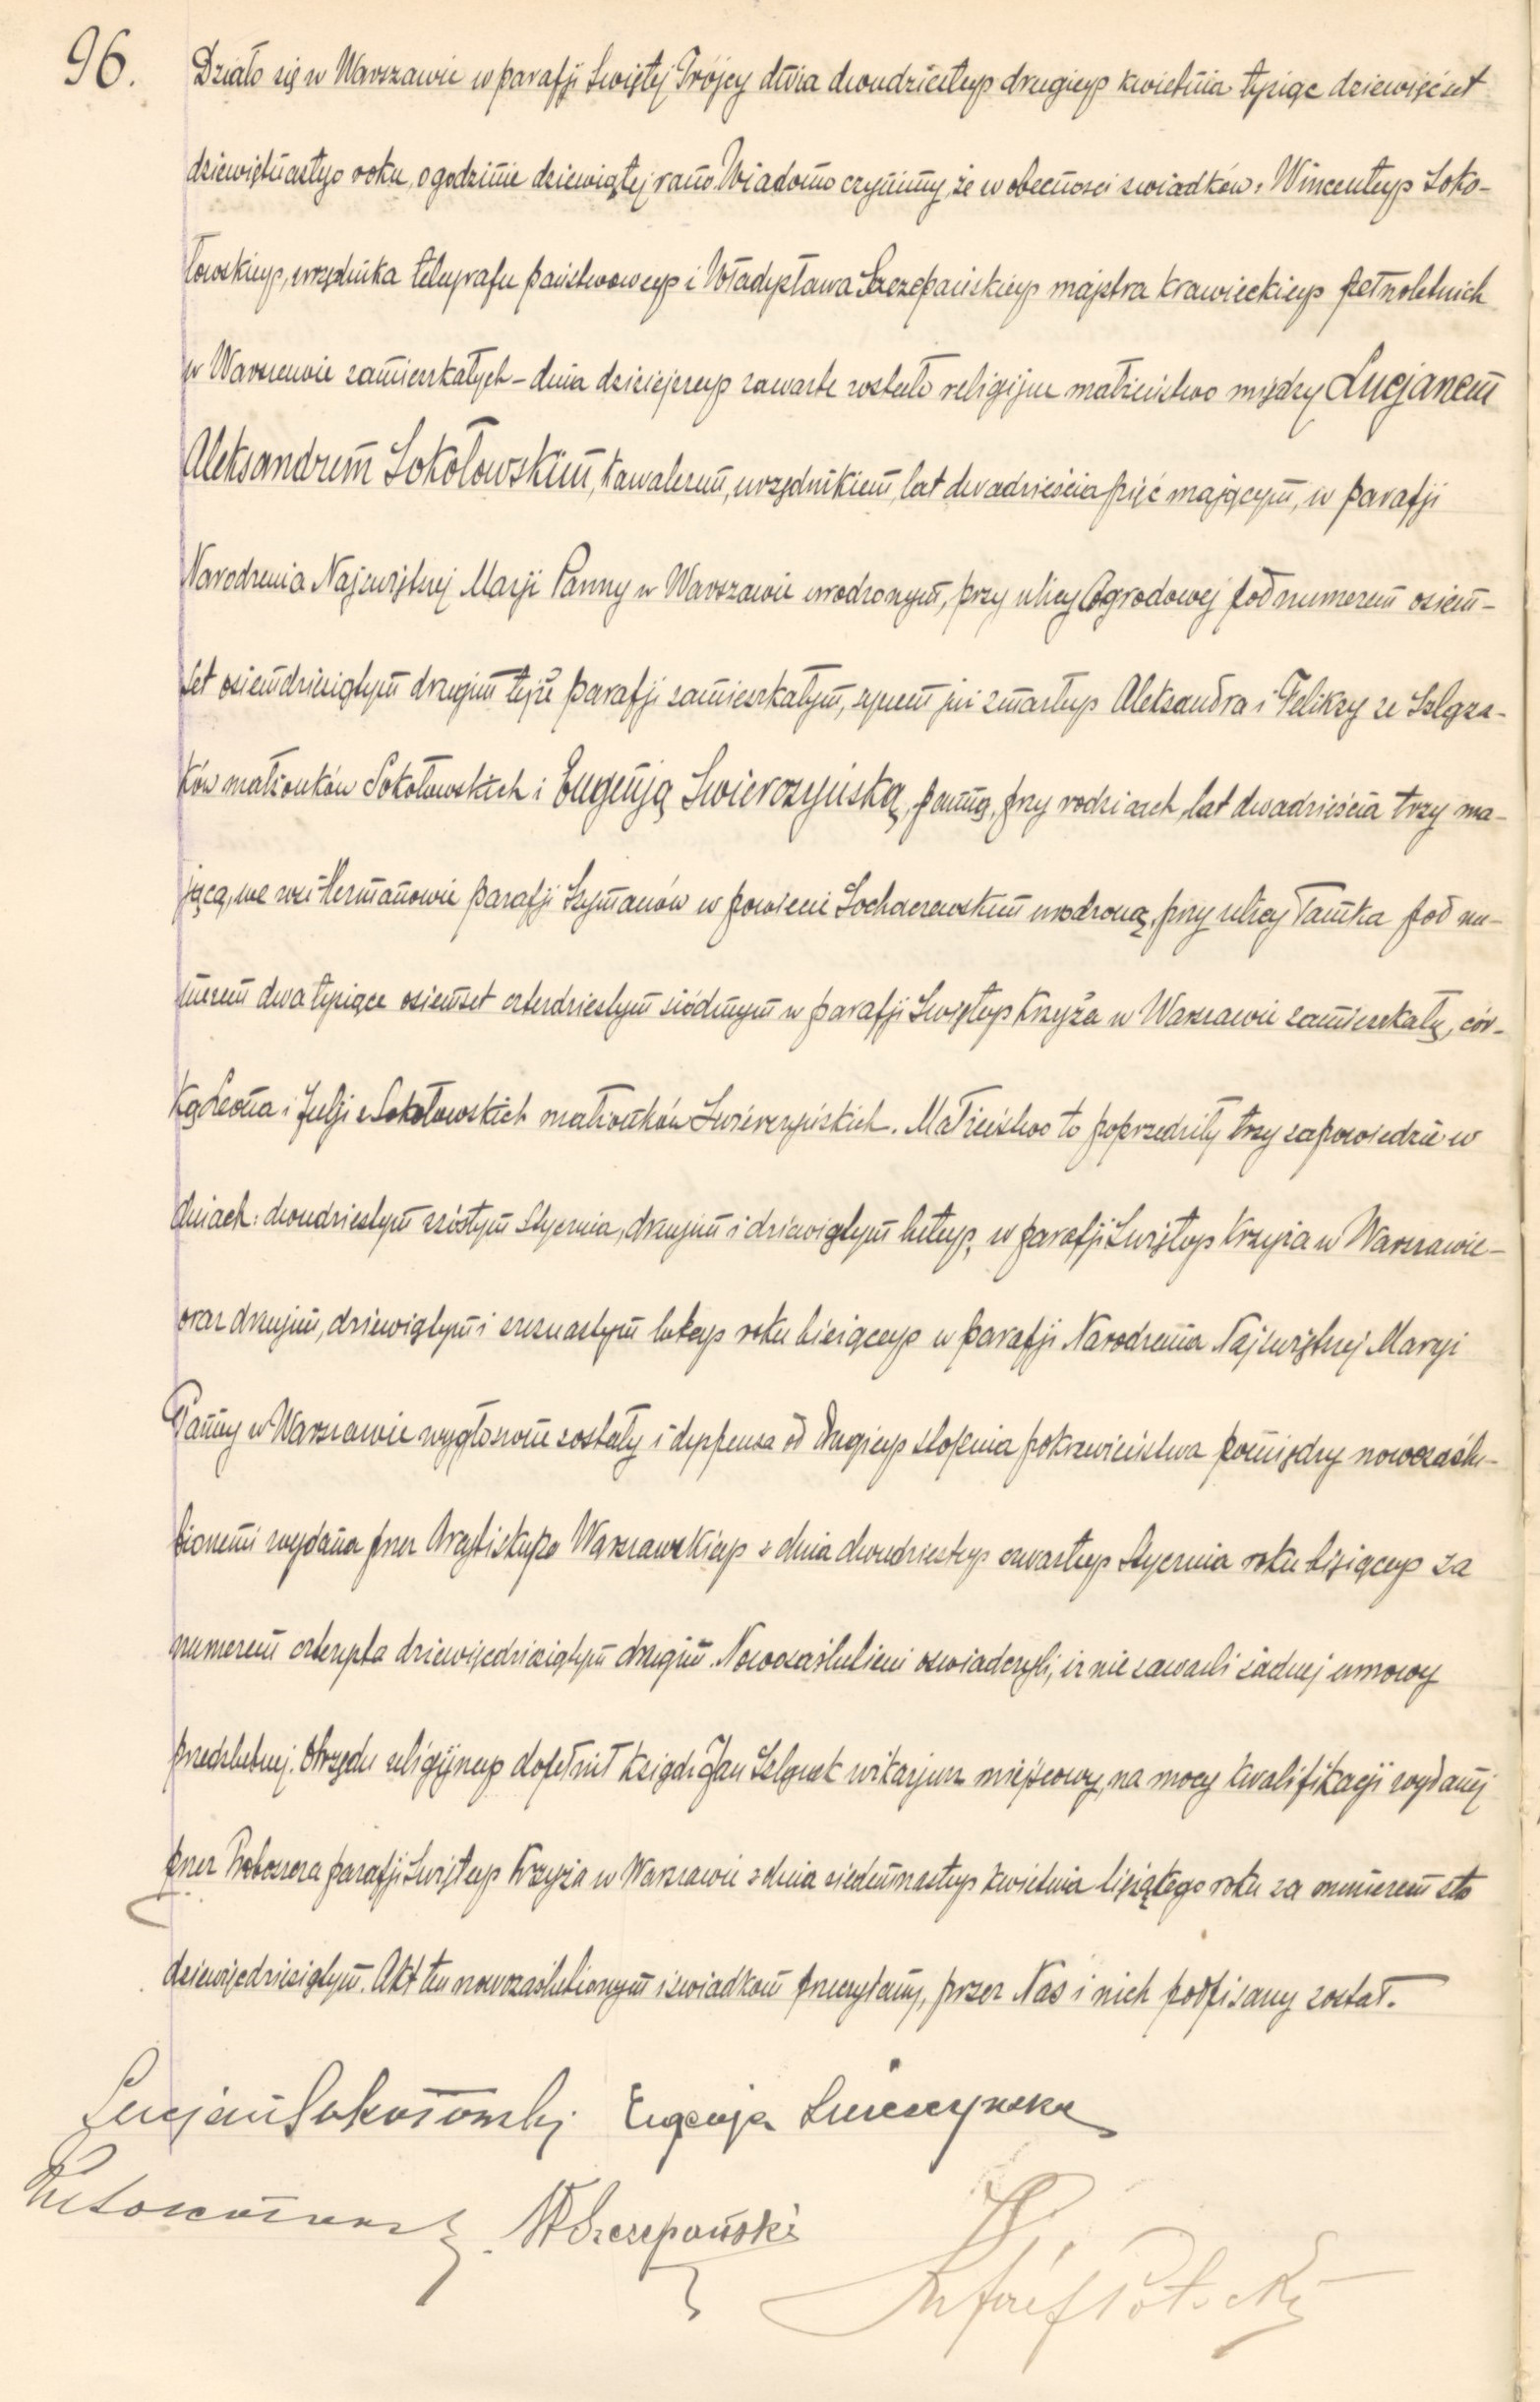 96.
Działo się w Warszawie w parafji Świętej Trójcy dnia dwudziestego drugiego kwietnia tysiąc dziewięćset
dziewiętnastego roku, o godzinie dziewiątej rano. Wiadomo czynimy, że w obecności świadków: Wincentego Soko-
łowskiego, urzędnika telegrafu państwowego i Władysława Szczepańskiego majstra krawieckiego pełnoletnich
w Warszawie zamieszkałych – dnia dzisiejszego zawarte zostało religijne małżeństwo między Lucjanem
Aleksandrem Sokołowskim, kawalerem, urzędnikiem, lat dwadzieścia pięć mającym, w parafji
Narodzenia Najświętszej Marji Panny w Warszawie urodzonym, przy ulicy Ogrodowej pod numerem osiem-
set osiemdziesiątym drugim tejże parafji zamieszkałym, synem już zmarłego Aleksandra i Feliksy ze Szlęza-
ków małżonków Sokołowskich i Eugenją Świerczyńską, panną, przy rodzicach, lat dwadzieścia trzy ma-
jącą, we wsi Hermanowie parafji Szymanów w powiecie Sochaczewskim urodzoną, przy ulicy Tamka pod nu-
merem dwa tysiące osiemset czterdziestym siódmym w parafji Świętego Krzyża w Warszawie zamieszkałą, cór-
ką Leona i Julji z Sokołowskich małżonków Świerczyńskich. Małżeństwo to poprzedziły trzy zapowiedzie w
dniach: dwudziestym szóstym stycznia, drugim i dziewiątym lutego, w parafji Świętego Krzyża w Warszawie –
oraz drugim, dziewiątym i szesnastym lutego roku bieżącego w parafji Narodzenia Najświętszej Maryi
Panny w Warszawie wygłoszone zostały i dyspensa od drugiego stopnia pokrewieństwa pomiędzy nowozaślu-
bionemi wydana przez Arcybiskupa Warszawskiego z dnia dwudziestego czwartego stycznia roku bieżącego za
numerem czterysta dziewięćdziesiątym drugim. Nowozaślubieni oświadczyli, iż nie zawarli żadnej umowy
przedślubnej. Obrzędu religijnego dopełnił ksiądz Jan wikarjusz miejscowy, na mocy kwalifikacji wydanej
przez Proboszcza parafji Świętego Krzyża w Warszawie z dnia siedemnastego kwietnia bieżącego roku za numerem sto
dziewięćdziesiątym. Akt ten nowozaślubionym i świadkom przeczytany, przez Nas i nich podpisany został.
Lucjan Sokołowski Eugenja Świerczyńska
W Sokołowski W Szczepański